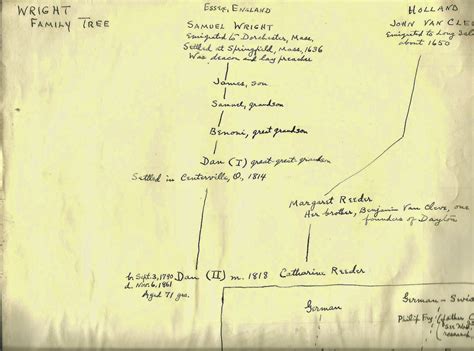 WRIGHT
FAMILY TREE
ESSEX, ENGLAND
SAMUEL WRIGHT
Emigrated to Dorchester, Mass.
Settled at Springfield, Mass, 1636
Was deacon and lay preacher
HOLLAND
JOHN VAN CLE
Emigrated to Long Isla
about 1650
James, son
Samuel, grandson
Benoni, great grandson
Dan (I) great-great-grandson
Settled in Centerville, O., 1814
Margaret Reeder
Her brother, Benjamin Van Cleve, one
founders of Dayton
b. Sept. 3, 1790 Dan (II) m. 1818 Catharine Reeder
d. Nov. 6, 1861
Aged 71 yrs.
German
German - Swis
Philip Fry (father